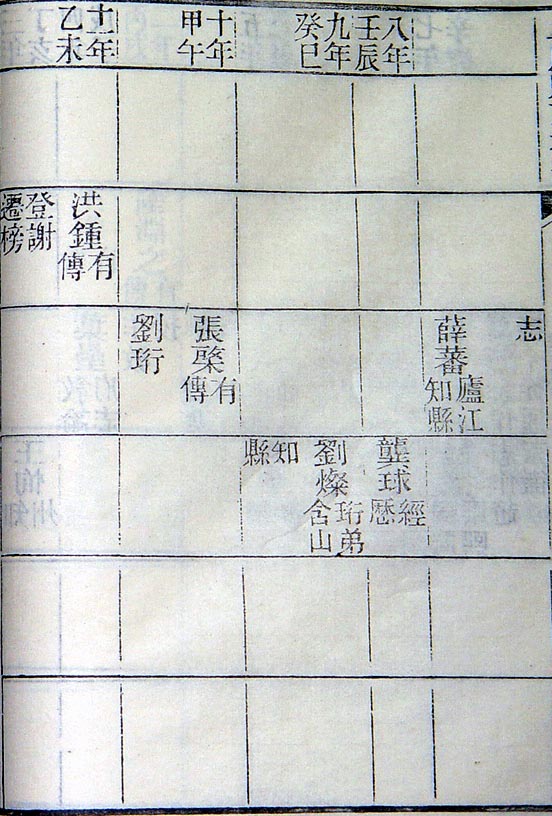 八年
壬辰
九年
癸巳
十年
甲午
十一年
乙未
洪鍾
有
傳
登謝
遷榜
志
薛蕃
廬江
知縣
張棨
有
傳
劉珩
龔球
經
歷
劉燦
珩弟
含山
知
縣